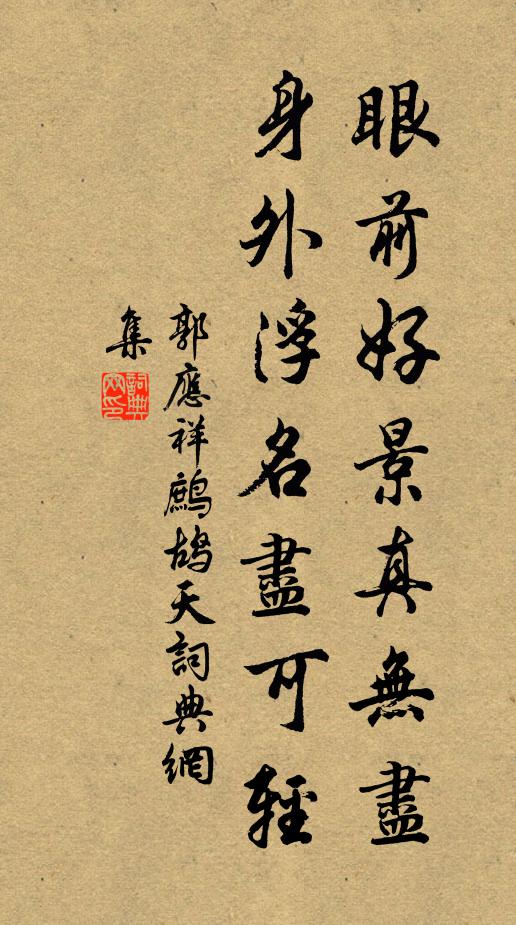 眼前好景真無盡
身外浮名盡可輕
郭應祥鷓鴣天詞典網
集
詞典網印